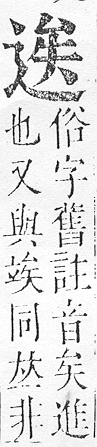 逘
俗字舊註音矣進
也又與竢同𠀤非